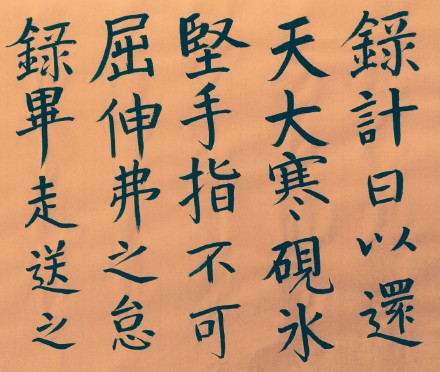 錄計日以還
天大寒硯冰
堅手指不可
屈伸弗之怠
錄畢走送之